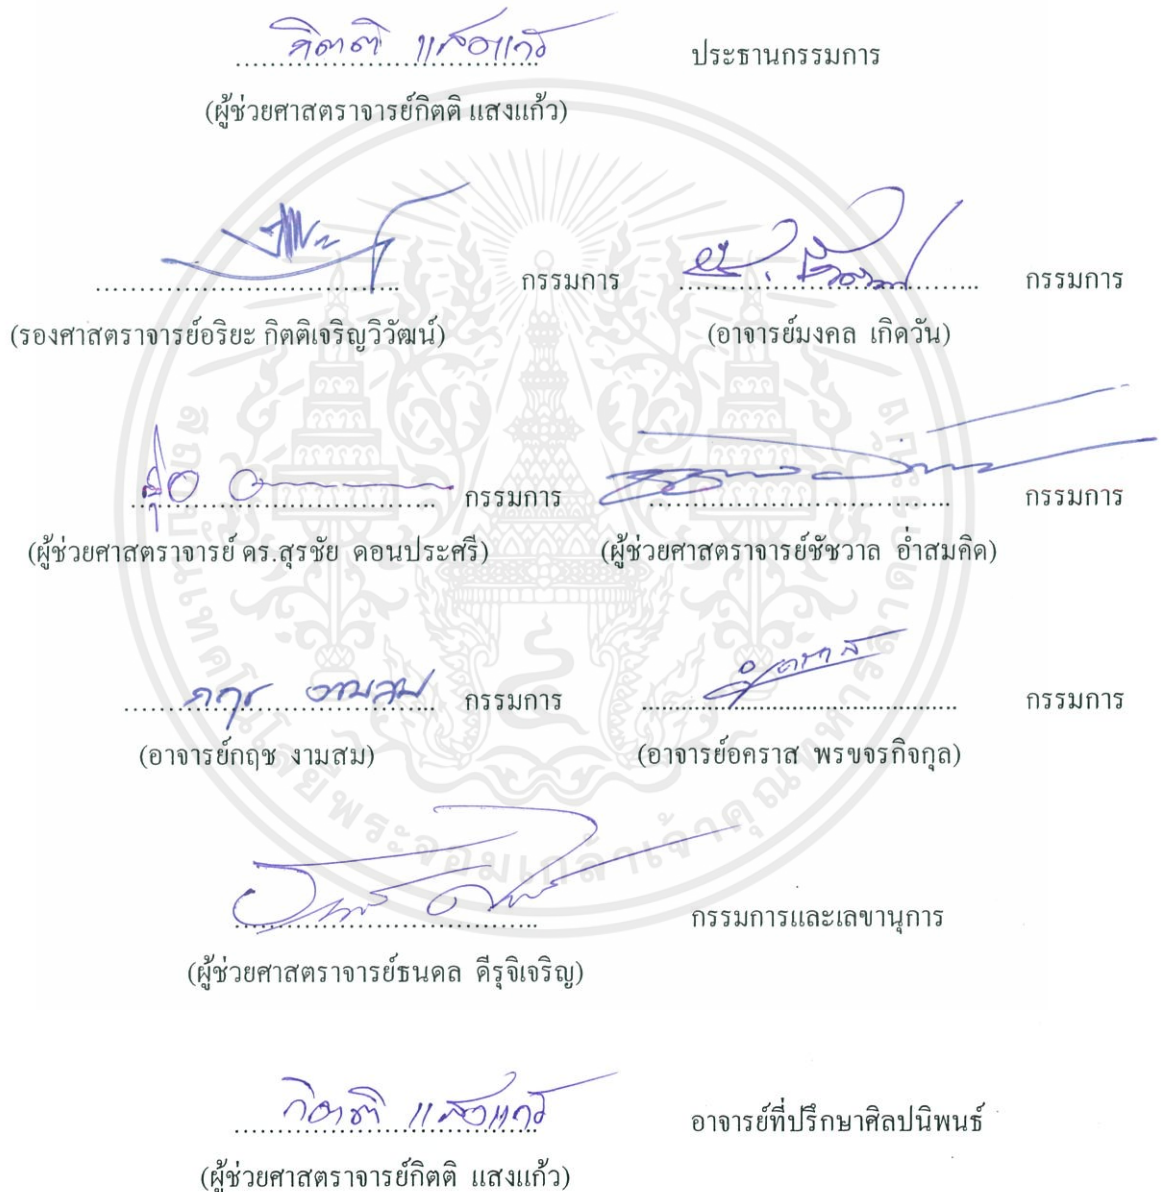 กิตติ แสงแก้ว ประธานกรรมการ
(ผู้ช่วยศาสตราจารย์กิตติ แสงแก้ว)
กรรมการ กรรมการ
(รองศาสตราจารย์อริยะ กิตติเจริญวิวัฒน์) (อาจารย์มงคล เกิดวัน)
กรรมการ กรรมการ
(ผู้ช่วยศาสตราจารย์ ดร.สุรชัย ดอนประศรี) (ผู้ช่วยศาสตราจารย์ชัชวาล อ่ำสมคิด)
กฤช งามสม กรรมการ กรรมการ
(อาจารย์กฤช งามสม) (อาจารย์อคราส พรขจรกิจกุล)
กรรมการและเลขานุการ
(ผู้ช่วยศาสตราจารย์ธนดล ดีรุจิเจริญ)
กิตติ แสงแก้ว อาจารย์ที่ปรึกษาศิลปนิพนธ์
(ผู้ช่วยศาสตราจารย์กิตติ แสงแก้ว)
สถาบันเทคโนโลยีพระจอมเกล้าเจ้าคุณทหารลาดกระบัง